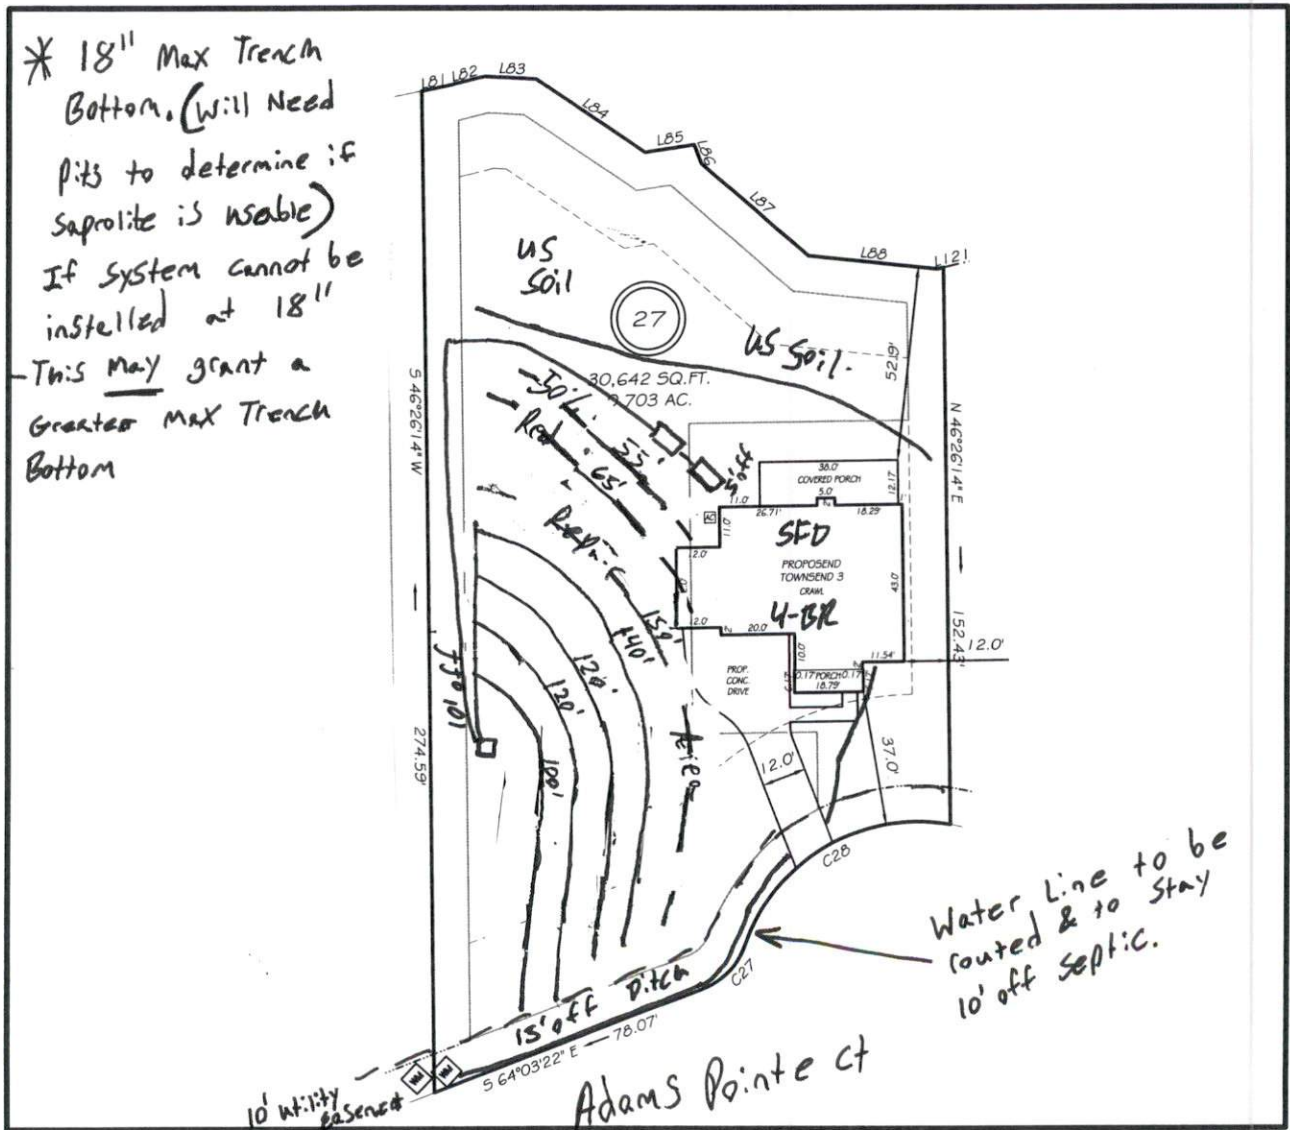 * 18" Max Trench
Bottom. (Will Need
Pits to determine if
Saprolite is useable)
If System cannot be
installed at 18"
This may grant a
Greater Max Trench
Bottom
L81 L82 L83
L84
L85
L86
L87
L88
L121
US
Soil
27
US Soil.
30,642 SQ.FT.
0.703 AC.
52.9'
S 46°26'14" W
274.59'
N 46°26'14" E
152.43'
55'
65'
5' off
38.0'
COVERED PORCH
12.17
5.0'
11.0'
26.71'
18.29'
AC
11.0'
SFD
2.0'
PROPOSEND
TOWNSEND 3
CRAWL
43.0'
4-BR
2.0'
20.0'
10.0'
11.54'
12.0'
PROP.
CONC.
DRIVE
0.17' PORCH 0.17'
18.79'
Repair
150'
140'
120'
120'
100'
10' off
12.0'
37.0'
C28
C27
15' off Ditch
S 64°03'22" E
78.07'
WM
WM
10' utility
easement
Adams Pointe Ct
Water Line to be
routed & to Stay
10' off Septic.